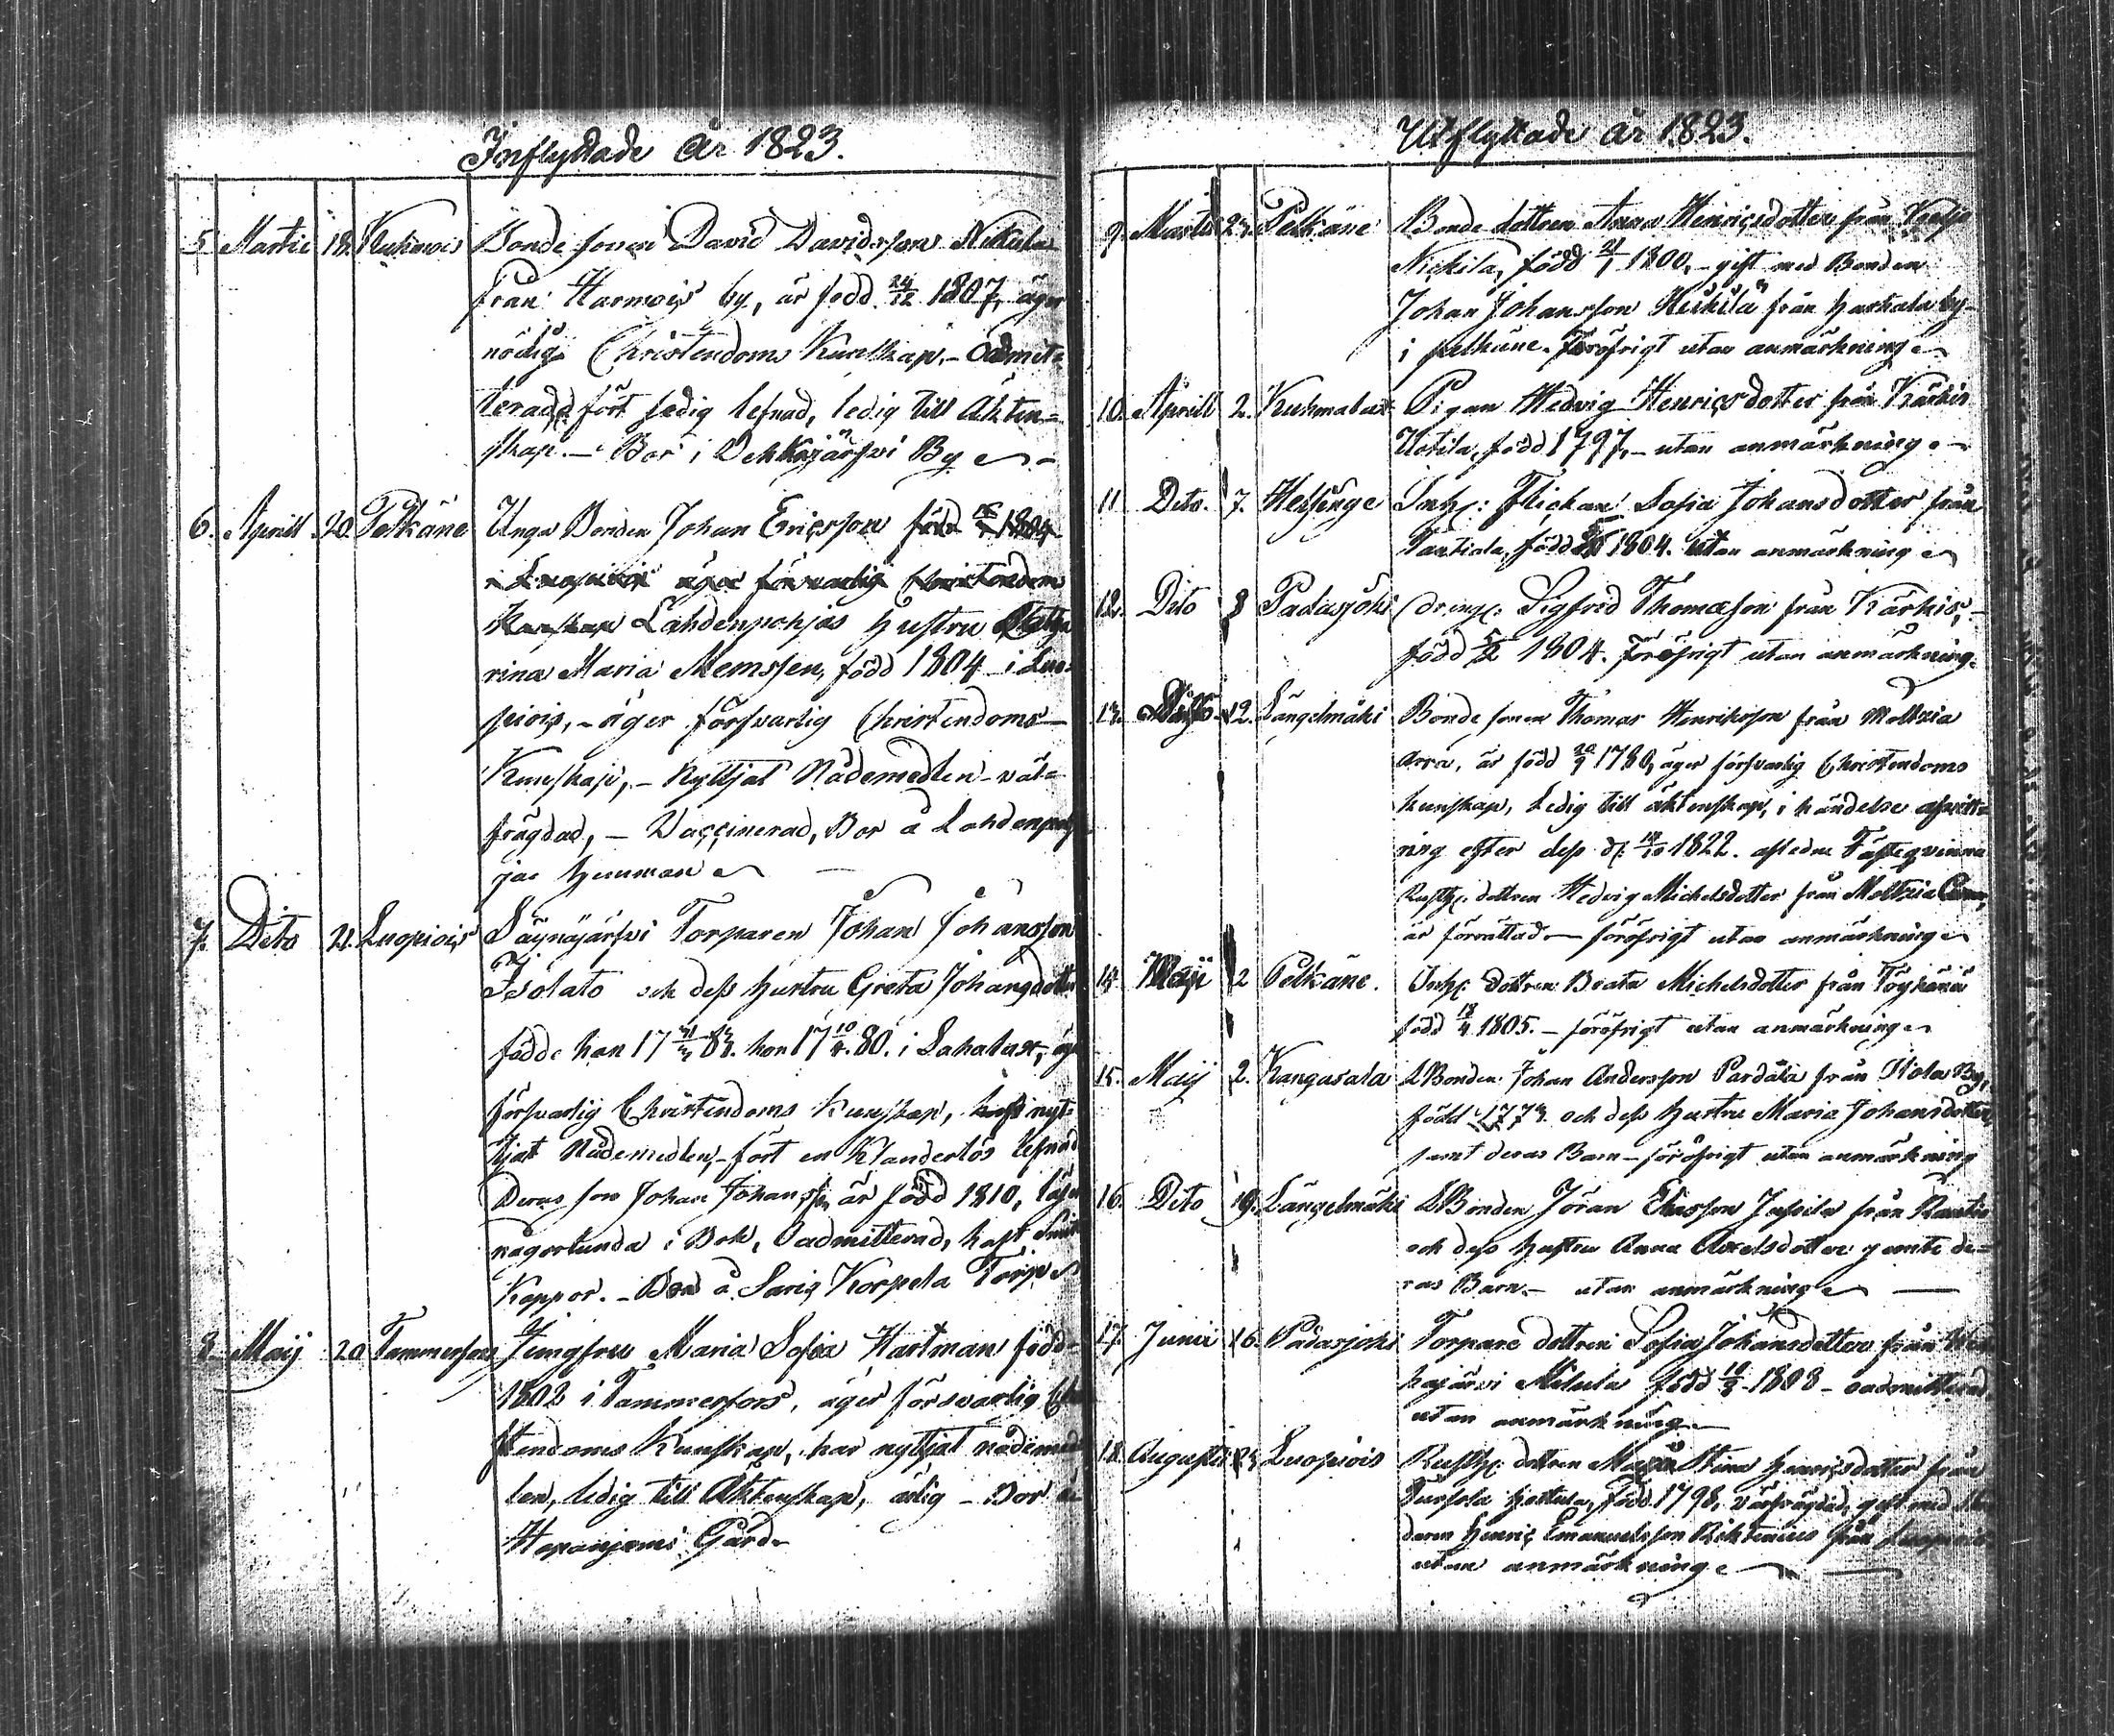 Inflyttade År 1823.
5. Martii 18. Kuhmois Bonde sonen David Davidsson Nikula
från Harmois by, är född 24/12 1807, äger
nödig Christendoms Kunskap, - Oadmit-
terad, fört sedig lefnad, ledig till Äkten-
skap. - Bor i Vehkajärfvi By
6. Aprill 20. Pelkäne Unga Bonden Johan Ericsson född 1804
i Luopiois äger försvarlig Christendom
Kunskap Lahdenpohjas hustru Catha
rina Maria Memssen, född 1804 i Luo-
piois, - äger försvarlig Christendoms
Kunskap, - Nyttjat Nådemedlen - väl-
frägdad, - Vaccinerad, Bor å Lahdenpoh
jas hemman
7. Dito 21. Luopiois Säynäjärfvi Torparen Johan Johansson
Isolato och dess hustru Greta Johansdotter
födde han 17 83. hon 17 10/4 80. i Sahalax, äga
försvarlig Christendoms Kunskap, nyt-
tjat Nådemedlen, - fört en Klanderlös lefnad
Deras son Johan Johansson är född 1810, läser
någorlunda i Bok, Oadmitterad, haft
Koppor. - Bor å Korpela Torp
8. Maij 20 Tammerfors Jungfru Maria Sofia Hartman född
1802 i Tammerfors, äger försvarlig Chri
stendoms Kunskap, har nyttjat nådemed
len, ledig till Äktenskap, ärlig - Bor å
Hapaniemi Gård
Utflyttade år 1823.
9. Martii 23. Pelkäne Bonde dottren Anna Henricsdotter från
Nickila, född 21/1 1800, - gift med Bonden
Johan Johansson Heikilä från Harhala by
i pelkäne. föröfrigt utan anmärkning
10. Aprill 2. Kuhmalax Pigan Hedvig Henricsdotter från Kärkis
Uotila, född 1797, - utan anmärkning
11 Dito. 7. Helsinge Inhs: Flickan Sofia Johansdotter från
född 1804. utan anmärkning
12. Dito 8 Padasjoki Drengs: Sigfred Thomasson från Kärkis,
född 5/2 1804. föröfrigt utan anmärkning.
13. 12. Längelmäki Bonde sonen Thomas Henriksson från Moltzia
Arra, är född 20/9 1780, äger försvarlig Christendoms
kunskap, Ledig till äktenskap, i händelse afvitt-
ring efter dess d: 1822. afledne Fästeqvinna
Rusth: dottren Hedvig Michelsdotter från Moltzia
är förrättad - föröfrigt utan anmärkning
14 Maij 2 Pelkäne. Inhs: Dottren Beata Michelsdotter från
född 18/4 1805. - föröfrigt utan anmärkning
15. Maij 2. Kangasala LBonden Johan Andersson Pardala från By,
född 1773 och dess hustru Maria Johansdotter,
samt deras Barn - föröfrigt utan anmärkning
16. Dito 19. Längelmäki LBonden Jöran från
och dess hustru Anna Axelsdotter jemte de-
ras Barn. - utan anmärkning
17. Junii 16. Padasjoki Torpare dottren Sofia Johansdotter från Weh
kajärvi född 1808 - oadmitterad
utan anmärkning
18. Augusti Luopiois Rusth: dottren Maja Stina Henricsdotter från
född 1798, välfrägdad, gift med
Henric Emanuelsson från Luopiois
utan anmärkning